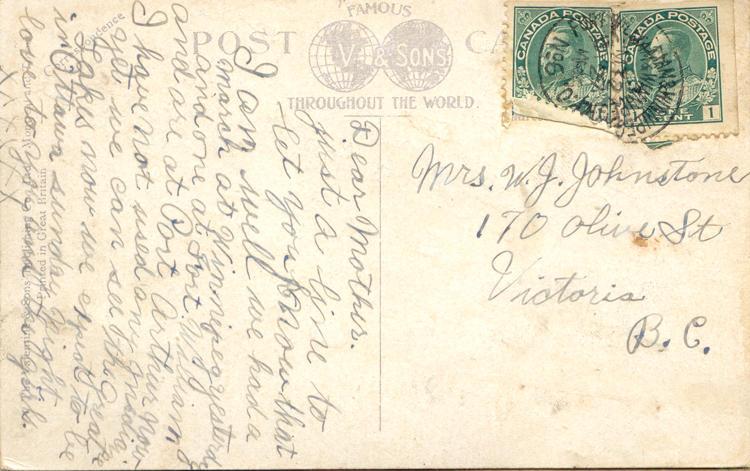 FAMOUS
POST CA
V. & SONS
THROUGHOUT THE WORLD.
CANADA POSTAGE
CANADA POSTAGE
No 6
1
CENT
Mrs. W. J. Johnstone
170 Olive St
Victoria
B.C.
Dear Mother.
just a line to
let you know that
I am well we had a
march at Winnipeg yesterday
and one at Fort William
and are at Port Arthur now
I have not used any
yet, we can see the Great
Lakes now we expect to be
in Ottawa Sunday night
love to you
X X X X
Correspondence
Printed in Great Britain